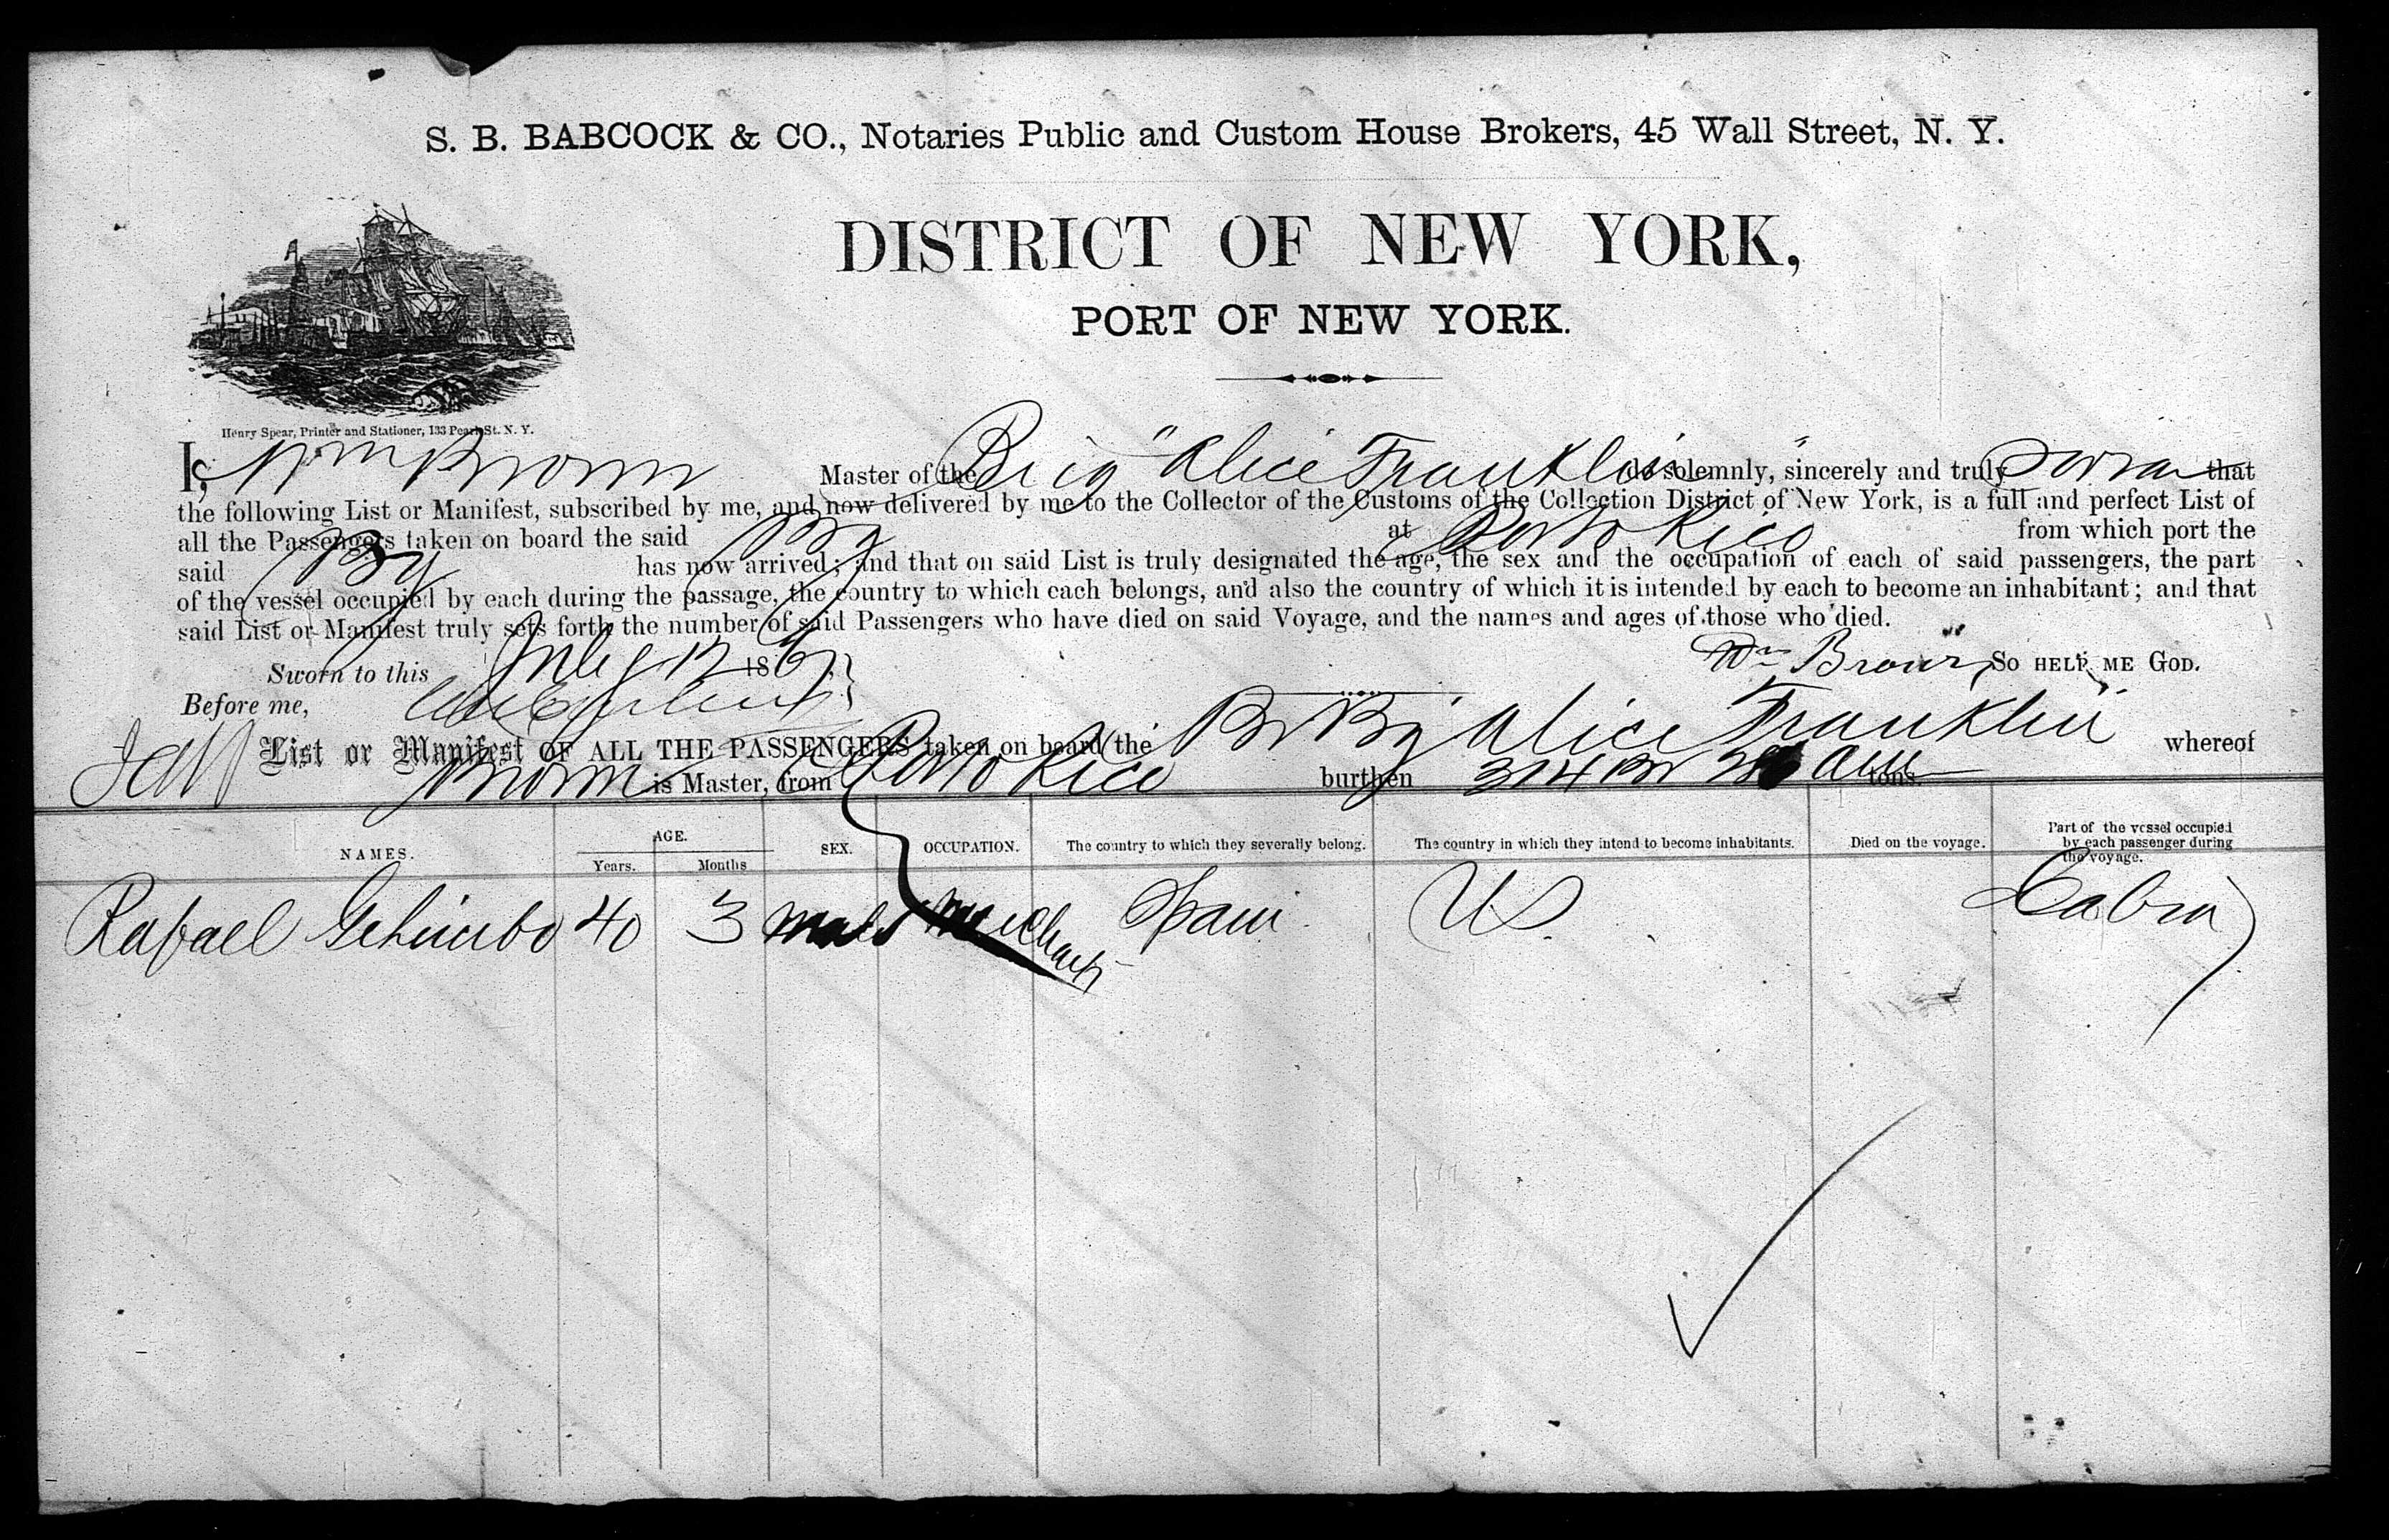 S. B. BABCOCK & CO., Notaries Public and Custom House Brokers, 45 Wall Street, N. Y.
DISTRICT OF NEW YORK,
PORT OF NEW YORK.
Henry Spear, Printer and Stationer, 133 Pearl St. N. Y.
I, Wm Brown Master of the Brig "Alice Franklin" do solemnly, sincerely and truly swear that
the following List or Manifest, subscribed by me, and now delivered by me to the Collector of the Customs of the Collection District of New York, is a full and perfect List of
all the Passengers taken on board the said Bg at Porto Rico from which port the
said Bg has now arrived; and that on said List is truly designated the age, the sex and the occupation of each of said passengers, the part
of the vessel occupied by each during the passage, the country to which each belongs, and also the country of which it is intended by each to become an inhabitant; and that
said List or Manifest truly sets forth the number of said Passengers who have died on said Voyage, and the names and ages of those who died.
Sworn to this July 12 186 Wm Brown So HELP ME GOD.
Before me,
List or Manifest OF ALL THE PASSENGERS taken on board the Br Bg Alice Franklin whereof
Brown is Master, from Porto Rico burthen 314 tons.
NAMES. AGE. Years. Months SEX. OCCUPATION. The country to which they severally belong. The country in which they intend to become inhabitants. Died on the voyage. Part of the vessel occupied by each passenger during the voyage.
Rafael 40 3 male Merchant Spain US Cabin